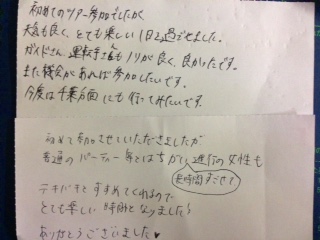 初めてのツアー参加でしたが
天気も良く、とても楽しい1日を過ごせました。
ガイドさん、運転手さんもノリが良く、良かったです。
また機会があれば参加したいです。
今度は千葉方面にも行ってみたいです。
初めて参加させていただきましたが
普通のパーティー等とはちがい、進行の女性も
長時間すごせて
テキパキとすすめてくれるので
とても楽しい時間となりました!
ありがとうございました♥